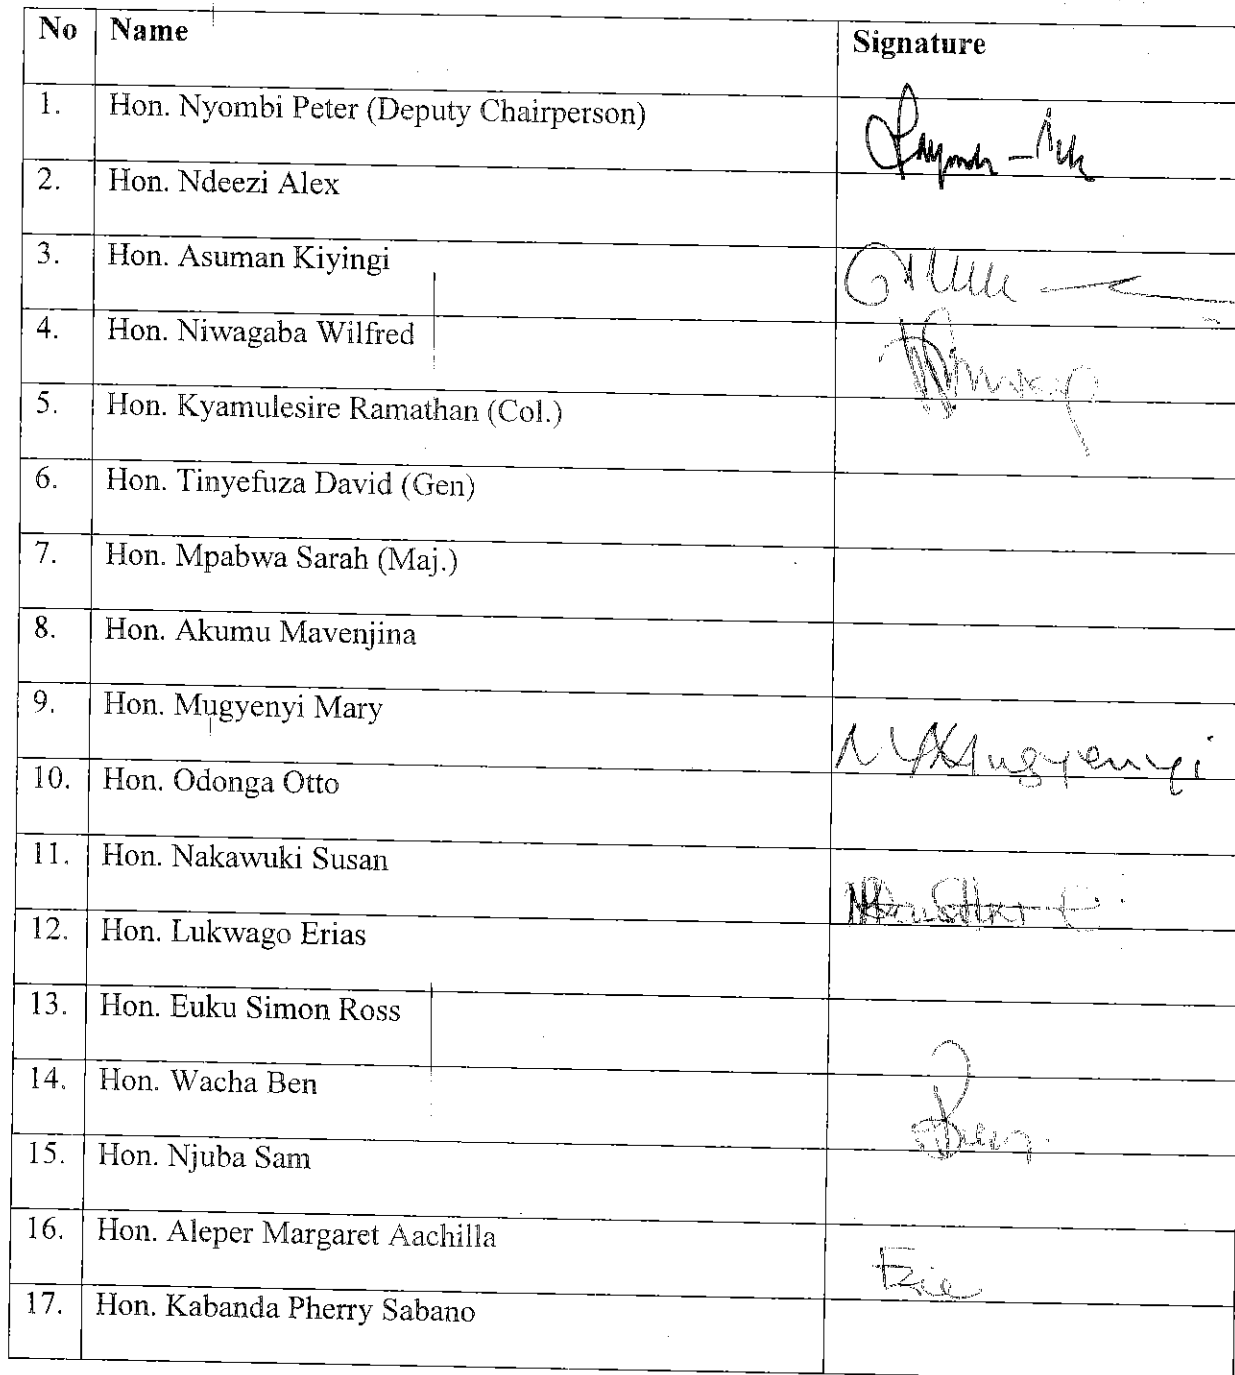 No Name Signature
1. Hon. Nyombi Peter (Deputy Chairperson)
2. Hon. Ndeezi Alex
3. Hon. Asuman Kiyingi
4. Hon. Niwagaba Wilfred
5. Hon. Kyamulesire Ramathan (Col.)
6. Hon. Tinyefuza David (Gen)
7. Hon. Mpabwa Sarah (Maj.)
8. Hon. Akumu Mavenjina
9. Hon. Mugyenyi Mary
10. Hon. Odonga Otto
11. Hon. Nakawuki Susan
12. Hon. Lukwago Erias
13. Hon. Euku Simon Ross
14. Hon. Wacha Ben
15. Hon. Njuba Sam
16. Hon. Aleper Margaret Aachilla
17. Hon. Kabanda Pherry Sabano